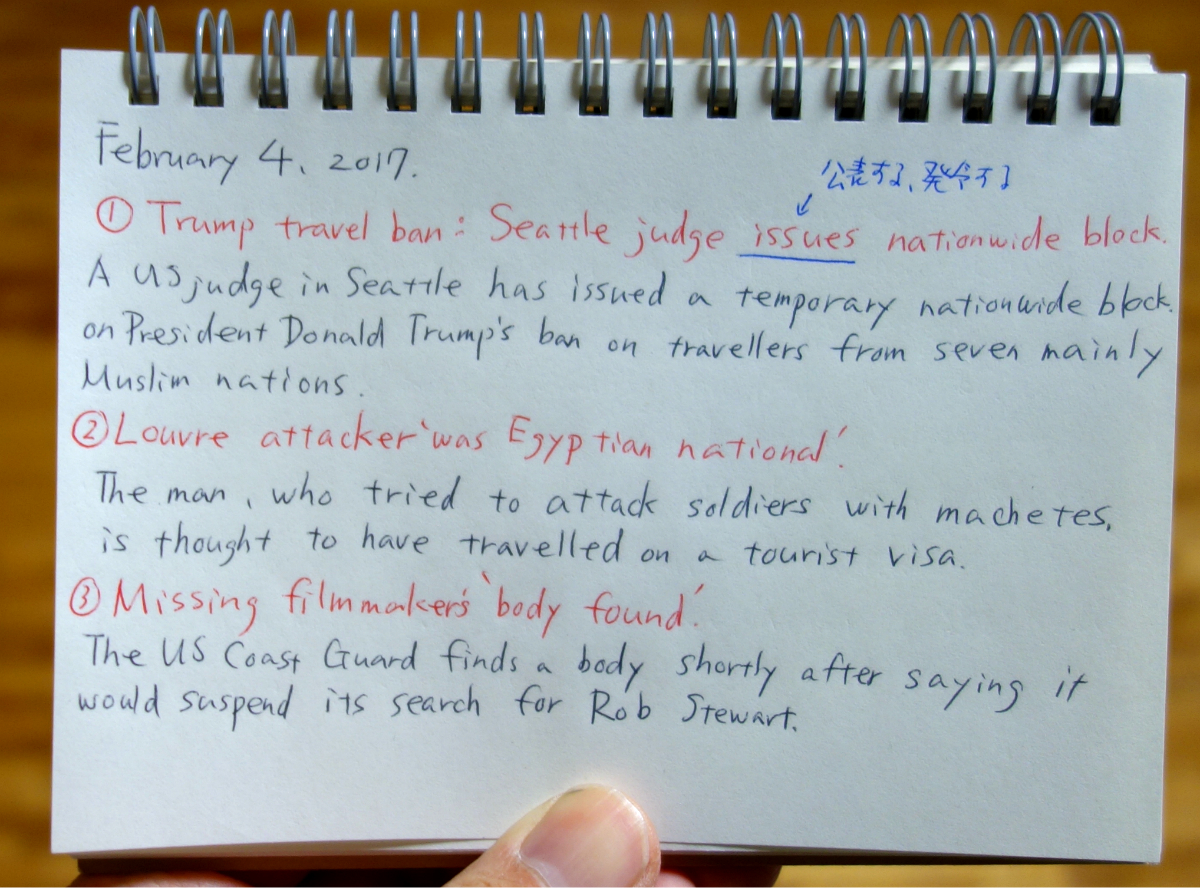 February 4, 2017.
公表する、発令する
① Trump travel ban: Seattle judge issues nationwide block.
A US judge in Seattle has issued a temporary nationwide block.
on President Donald Trump's ban on travellers from seven mainly
Muslim nations.
② Louvre attacker 'was Egyptian national'.
The man, who tried to attack soldiers with machetes,
is thought to have travelled on a tourist visa.
③ Missing filmmaker's 'body found'.
The US Coast Guard finds a body shortly after saying it
would suspend its search for Rob Stewart.